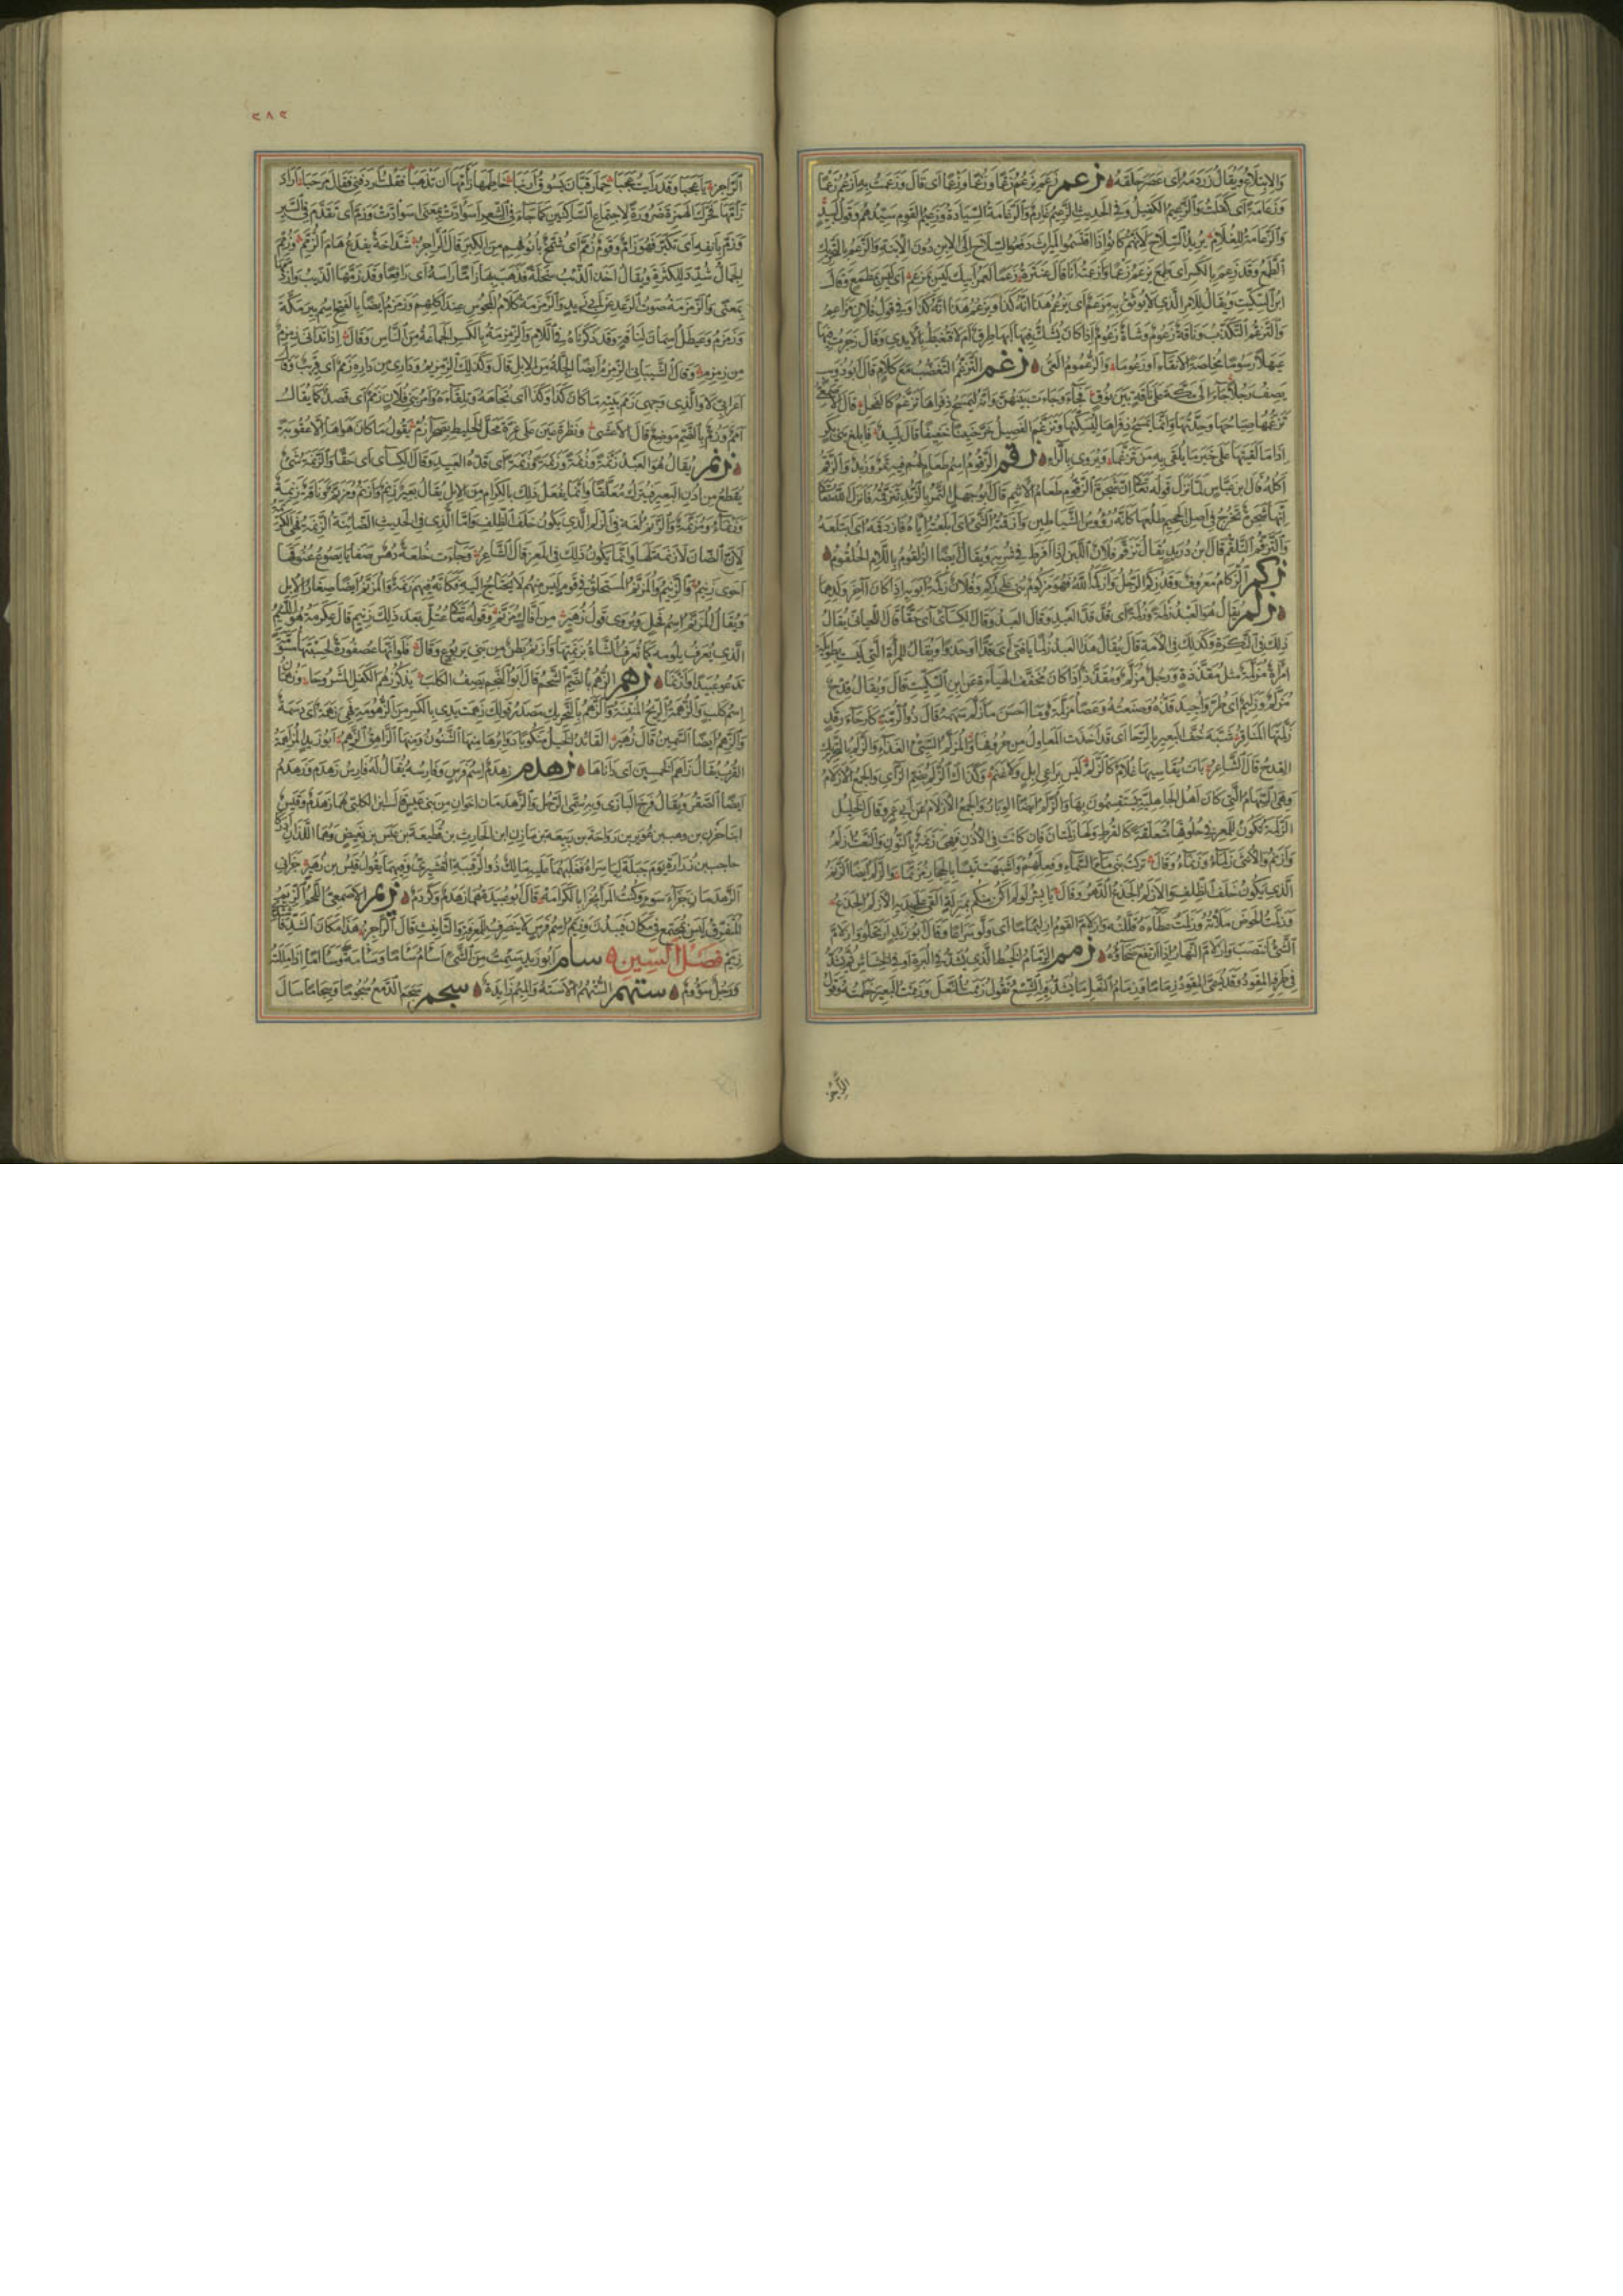 والابتلاع ويقال زردمه أى عصر حلقه زعم زعم يزعم زعما وزعما وزعما أى قال وزعمت به أزعم زعما
وزعامة أى كفلت والزعيم الكفيل وفى الحديث الزعيم غارم والزعامة السيادة وزعيم القوم سيدهم وقول لبيد
والزعامة للغلام يريد السلاح لأنهم كانوا إذا اقتسموا الميراث دفعوا السلاح إلى الابن دون الابنة والزعم بالتحريك
الطمع وقد زعم بالكسر أى طمع يزعم زعما وأزعمته أنا قال عنترة زعما لعمر أبيك ليس بمزعم أى ليس بمطمع وقال
ابن السكيت ويقال للأمر الذى لا يوثق به مزعم أى يزعم هذا أنه كذا ويزعم هذا أنه كذا وفى قول فلان مزاعم
والتزعم التكذب وناقة زعوم وشاة زعوم إذا كان يشك فيها أبها طرق أم لا فتغبط بالأيدى وقال زجرت فيها
عيهلا رسوما مخلصة الأنقاء أو زعوما والزعموم العى زغم التزغم التغضب مع كلام قال أبو ذؤيب
يصف رجلا جاء إلى مكة على ناقة بين نوق فجاء وجاءت بينهن وإنه ليمسح ذفراها تزغم كالفحل قال الأصمعى
تزغمها صياحها وحدتها وإنما يمسح ذفراها ليسكنها وتزغم الفصيل حن حنينا خفيفا قال لبيد فأبلغ بنى بكر
إذا ما لقيتها على خير ما يلقى به من تزغما ويروى بالراء زقم الزقوم اسم طعام لهم فيه تمر وزبد والزقم
أكله قال ابن عباس لما نزل قوله تعالى إن شجرة الزقوم طعام الأثيم قال أبو جهل التمر بالزبد نتزقمه فأنزل الله تعالى
إنها شجرة تخرج فى أصل الجحيم طلعها كأنه رؤوس الشياطين وأزقمته الشئ أى أبلعته إياه فازدقمه أى ابتلعه
والتزقم التلقم قال ابن دريد يقال تزقم فلان اللبن إذا أفرط فى شربه ويقال أيضا الزلقوم باللام الحلقوم
زكم الزكام معروف وقد زكم الرجل وأزكمه الله فهو مزكوم بنى على زكم وفلان زكمة أبويه إذا كان آخر ولدهما
زلم يقال هو العبد زلمة وزلمة أى قد قد العبد وقال الكسائى أى حقا قال اللحيانى يقال
ذلك فى النكرة وكذلك فى الأمة قال يقال هذا العبد زلما يا فتى أى قدا وحذوا ويقال للمرأة التى ليست بطويلة
امرأة مزلمة مثل مقذذة ورجل مزلم ومقذذ إذا كان مخفف الهيأة عن ابن السكيت قال ويقال قدح
مزلم وزليم أى طر وأجيد قده وصنعته وعصا مزلمة وما أحسن ما زلم سهمه قال ذو الرمة كأرحاء رقد
زلمتها المناقر شبه خف البعير بالرحا أى قد أخذت المعاول من حروفها والمزلم السيئ الغذاء والزلم بالتحريك
القدح قال الشاعر بات يقاسيها غلام كالزلم ليس براعى إبل ولا غنم وكذلك الزلم بضم الزاى والجمع الأزلام
وهى السهام التى كان أهل الجاهلية يستقسمون بها والزلم أيضا الوبار والجمع الأزلام عن أبى عمرو قال الخليل
الزلمة تكون للمعز فى حلوقها متعلقة كالقرط ولها زلمتان فإن كانت فى الأذن فهى زنمة بالنون والنعت أزلم
وأزنم والأنثى زلماء وزنماء وقال تركت بنى ماء السماء وفعلهم وأشبهت تيسا بالحجاز مزنما والزلم أيضا الزنم
الذى يكون خلف الظلف والأزلم الجذع الدهر وقال يا بشر لو لم أكن منكم بمنزلة ألقى على يديه الأزلم الجذع
وزلمت الحوض ملأته وزلمت عطاءه قللته وازلأم القوم ازلئماما أى ولوا سراعا وقال أبو زيد ارتحلوا وازلأم
الشئ انتصب وازلأم النهار إذا ارتفع ضحاؤه زمم الزمام الخيط الذى يشد فى البرة أو فى الخشاش ثم يشد
فى طرفه المقود وقد يسمى المقود زماما وزمام النعل ما يشد به الشسع تقول زممت النعل وزممت البعير خطمته وقول
الراجز
٢٨٢
الراجز يا عجبا وقد رأيت عجبا حمار قبان يسوق أرنبا خاطمها زأمها أن تذهبا فقلت أردفنى فقال مرحبا أراد
زامها فحرك الهمزة ضرورة لاجتماع الساكنين كما جاء فى الشعر اسوأدت بمعنى اسوادت وزم أى تقدم فى السير
وزم بأنفه أى تكبر فهو زام وقوم زمم أى شمخ بأنوفهم من الكبر قال الراجز شداخة يقدغ هام الزمم وزمم
الجمال شدد للكثرة ويقال أخذ الذئب سخلة فذهب بها زاما رأسه أى رافعا وقد زمها الذئب وازدمها
بمعنى والزمزمة صوت الرعد عن أبى زيد والزمزمة كلام المجوس عند أكلهم وزمزم أيضا بالفتح اسم بئر مكة
وزمزم وعيطل اسمان لناقة وقد ذكرناه فى اللام والزمزمة بالكسر الجماعة من الناس وقال إذا تدانى زمزم
من زمزم وقال الشيبانى الزمزم أيضا الجلة من الإبل قال وكذلك الزمزيم ودارى من داره زمم أى قريب وقال
أعرابى لا والذى وجهى زمم بيته ما كان كذا وكذا أى تجاهه وتلقاءه وأمر بنى فلان زمم أى قصد كما يقال
أمم وزم بالضم موضع قال الأعشى ونظرة عين على غرة محل الخليط بصحراء زم يقول ما كان هواها إلا عقوبة
زنم يقال هو العبد زنمة وزنمة وزنمة وزنمة أى قده العبد وقال الكسائى أى حقا والزنمة شئ
يقطع من أذن البعير فيترك معلقا وإنما يفعل ذلك بالكرام من الإبل يقال بعير زنم وأزنم ومزنم وناقة زنمة
وزنماء ومزنمة والزنم لغة فى الزلم الذى يكون خلف الظلف وأما الذى فى الحديث الضائنة الزنمة فهى الكريمة
لأن الضأن لا زنمة لها وإنما يكون ذلك فى المعز قال الشاعر وجاءت خلعة دهس صفايا يصوع عنوقها
أحوى زنيم والزنيم والمزنم المستلحق فى قوم ليس منهم لا يحتاج إليه فكأنه فيهم زنمة والمزنم أيضا صغار الإبل
ويقال المزنم اسم فحل ويروى قول زهير من إفال مزنم وقوله تعالى عتل بعد ذلك زنيم قال عكرمة هو اللئيم
الذى يعرف بلؤمه كما تعرف الشاة بزنمتها وأزنم بطن من بنى يربوع وقال فلو أنها عصفورة لحسبتها مسومة
تدعو عبيدا وأزنما زهم الزهم بالضم الشحم قال أبو النجم يصف الكلب يذكر زهم الكفل المشروحا وزهمان
اسم كلب والزهمة الريح المنتنة والزهم بالتحريك مصدر قولك زهمت يدى بالكسر من الزهومة فهى زهمة أى دسمة
والزهم أيضا السمين قال زهير القائد الخيل منكوبا دوابرها منها الشنون ومنها الزاهق الزهم أبو زيد المزاهمة
القرب يقال زاهم الخمسين أى داناها زهدم زهدم اسم فرس وفارسه يقال له فارس زهدم وزهدم
أيضا الصقر ويقال فرخ البازى وبه سمى الرجل والزهدمان أخوان من بنى عبس قال ابن الكلبى هما زهدم وقيس
ابنا حزن بن وهب بن عوير بن رواحة بن ربيعة بن مازن ابن الحارث بن قطيعة بن عبس بن بغيض وهما اللذان أدركا
حاجب بن زرارة يوم جبلة ليأسراه فغلبهما عليه مالك ذو الرقيبة القشيرى وفيهما يقول قيس بن زهير جزانى
الزهدمان جزاء سوء وكنت المرء يجزا بالكرامه قال أبو عبيدة هما زهدم وكردم زيم الأصمعى اللحم الزيم
المتفرق ليس بمجتمع فى مكان فيبدن وزيم اسم فرس لا ينصرف للمعرفة والتأنيث قال الراجز هذا مكان الشد فاشتدى
زيم فصل السين سأم أبو زيد سئمت من الشئ أسأم سأما وسأمة وسآمة إذا مللت
ورجل سؤوم ستهم الستهم الأسته والميم زائدة سجم سجم الدمع سجوما وسجاما سال